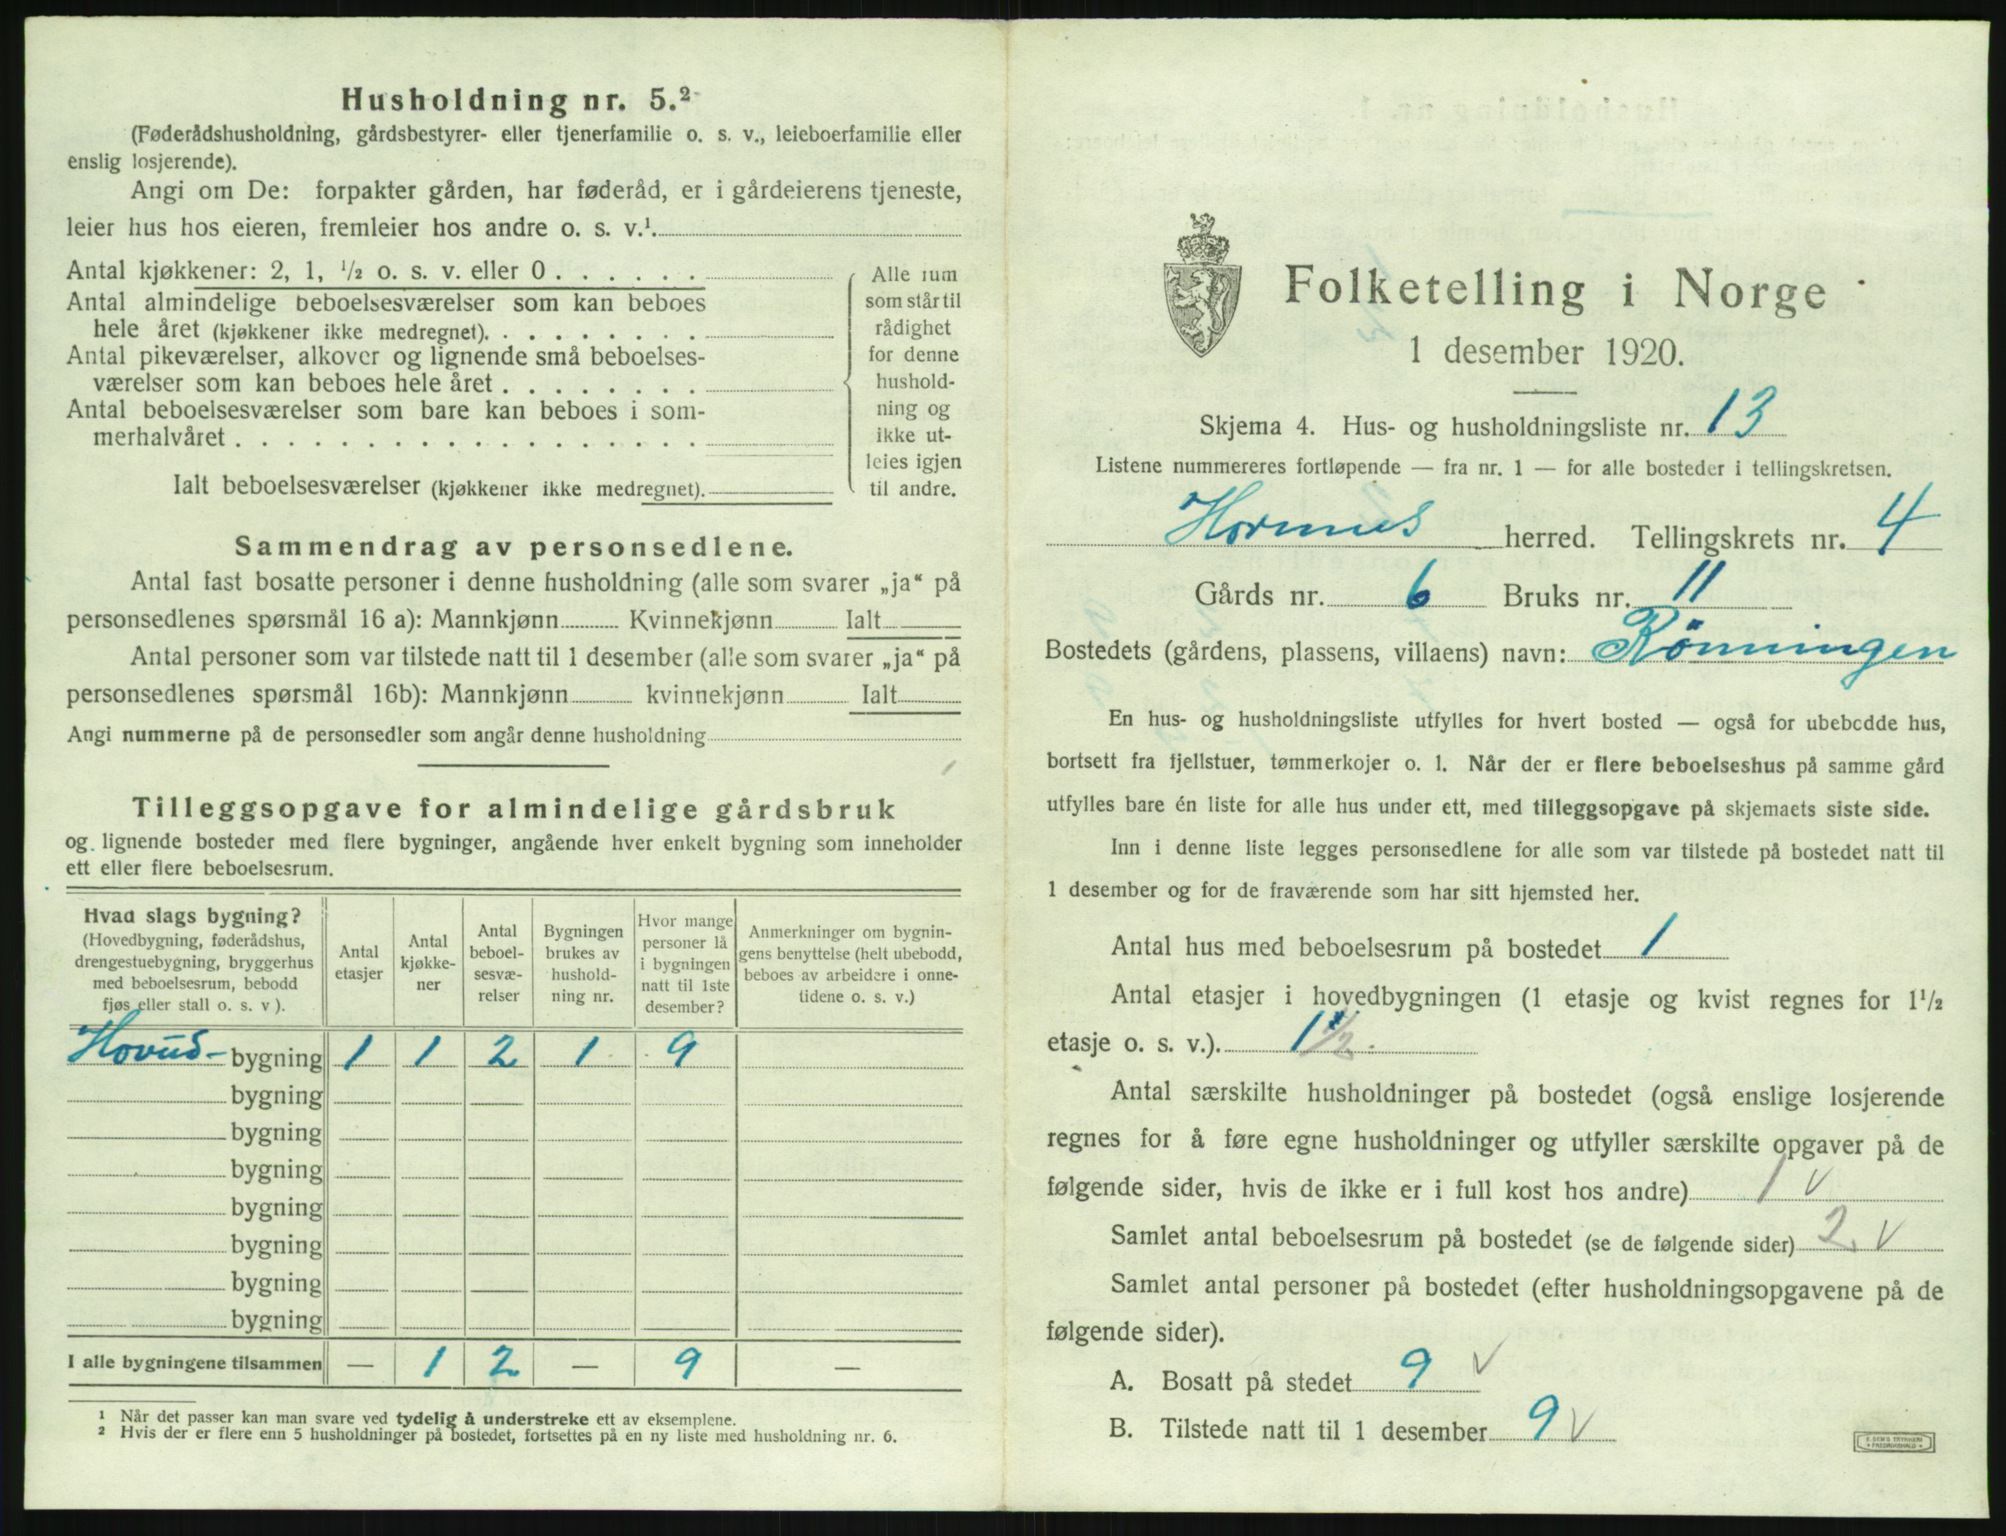 Husholdning nr. 5.²
(Føderådshusholdning, gårdsbestyrer- eller tjenerfamilie o. s. v., leieboerfamilie eller
enslig losjerende).
Angi om De: forpakter gården, har føderåd, er i gårdeierens tjeneste,
leier hus hos eieren, fremleier hos andre o. s. v.¹
Antal kjøkkener: 2, 1, ½ o. s. v. eller 0 . . . . . .
Antal almindelige beboelsesværelser som kan beboes
hele året (kjøkkener ikke medregnet). . . . . . . . .
Antal pikeværelser, alkover og lignende små beboelses-
værelser som kan beboes hele året . . . . . . . .
Antal beboelsesværelser som bare kan beboes i som-
merhalvåret . . . . . . . . . . . . . . . . . .
Ialt beboelsesværelser (kjøkkener ikke medregnet).
Alle rum
som står til
rådighet
for denne
hushold-
ning og
ikke ut-
leies igjen
til andre.
Sammendrag av personsedlene.
Antal fast bosatte personer i denne husholdning (alle som svarer „ja“ på
personsedlenes spørsmål 16 a): Mannkjønn Kvinnekjønn Ialt
Antal personer som var tilstede natt til 1 desember (alle som svarer „ja“ på
personsedlenes spørsmål 16b): Mannkjønn kvinnekjønn Ialt
Angi nummerne på de personsedler som angår denne husholdning
Tilleggsopgave for almindelige gårdsbruk
og lignende bosteder med flere bygninger, angående hver enkelt bygning som inneholder
ett eller flere beboelsesrum.
Hvad slags bygning?
(Hovedbygning, føderådshus,
drengestuebygning, bryggerhus
med beboelsesrum, bebodd
fjøs eller stall o. s. v ).
Antal
etasjer
Antal
kjøkke-
ner
Antal
beboel-
sesvæ-
relser
Bygningen
brukes av
hushold-
ning nr.
Hvor mange
personer lå
i bygningen
natt til 1ste
desember?
Anmerkninger om bygnin-
gens benyttelse (helt ubebodd,
beboes av arbeidere i onne-
tidene o. s. v.)
Hovud- bygning 1 1 2 1 9
bygning
bygning
bygning
bygning
bygning
bygning
bygning
I alle bygningene tilsammen — 1 2 — 9 —
¹ Når det passer kan man svare ved tydelig å understreke ett av eksemplene.
² Hvis der er flere enn 5 husholdninger på bostedet, fortsettes på en ny liste med husholdning nr. 6.
Folketelling i Norge
1 desember 1920.
Skjema 4. Hus- og husholdningsliste nr. 13
Listene nummereres fortløpende — fra nr. 1 — for alle bosteder i tellingskretsen.
Hornnes herred. Tellingskrets nr. 4
Gårds nr. 6 Bruks nr. 11
Bostedets (gårdens, plassens, villaens) navn: Rönningen
En hus- og husholdningsliste utfylles for hvert bosted — også for ubebodde hus,
bortsett fra fjellstuer, tømmerkojer o. l. Når der er flere beboelseshus på samme gård
utfylles bare én liste for alle hus under ett, med tilleggsopgave på skjemaets siste side.
Inn i denne liste legges personsedlene for alle som var tilstede på bostedet natt til
1 desember og for de fraværende som har sitt hjemsted her.
Antal hus med beboelsesrum på bostedet 1
Antal etasjer i hovedbygningen (1 etasje og kvist regnes for 1½
etasje o. s. v.). 1½
Antal særskilte husholdninger på bostedet (også enslige losjerende
regnes for å føre egne husholdninger og utfyller særskilte opgaver på de
følgende sider, hvis de ikke er i full kost hos andre) 1 v
Samlet antal beboelsesrum på bostedet (se de følgende sider) 2. v
Samlet antal personer på bostedet (efter husholdningsopgavene på de
følgende sider).
A. Bosatt på stedet 9 v
B. Tilstede natt til 1 desember 9 v